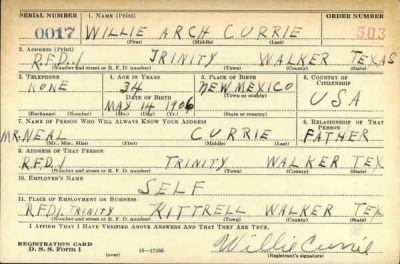 SERIAL NUMBER 1. NAME (Print) ORDER NUMBER
0017 WILLIE ARCH CURRIE 503
(First) (Middle) (Last)
2. ADDRESS (Print)
R.F.D.1 TRINITY WALKER TEXAS
(Number and street or R. F. D. number) (Town) (County) (State)
3. TELEPHONE 4. AGE IN YEARS 5. PLACE OF BIRTH 6. COUNTRY OF CITIZENSHIP
NONE 34 NEW MEXICO USA
DATE OF BIRTH (Town or county)
MAY 14 1906
(Exchange) (Number) (Mo.) (Day) (Yr.) (State or country)
7. NAME OF PERSON WHO WILL ALWAYS KNOW YOUR ADDRESS 8. RELATIONSHIP OF THAT PERSON
MR. NEAL CURRIE FATHER
(Mr., Mrs., Miss) (First) (Middle) (Last)
9. ADDRESS OF THAT PERSON
RFD.1 TRINITY WALKER TEX
(Number and street or R. F. D. number) (Town) (County) (State)
10. EMPLOYER'S NAME
SELF
11. PLACE OF EMPLOYMENT OR BUSINESS
RFD1. TRINITY KITTRELL WALKER TEX
(Number and street or R. F. D. number) (Town) (County) (State)
I AFFIRM THAT I HAVE VERIFIED ABOVE ANSWERS AND THAT THEY ARE TRUE.
REGISTRATION CARD
D. S. S. Form 1 (over) 16—17105 Willie Currie
(Registrant's signature)